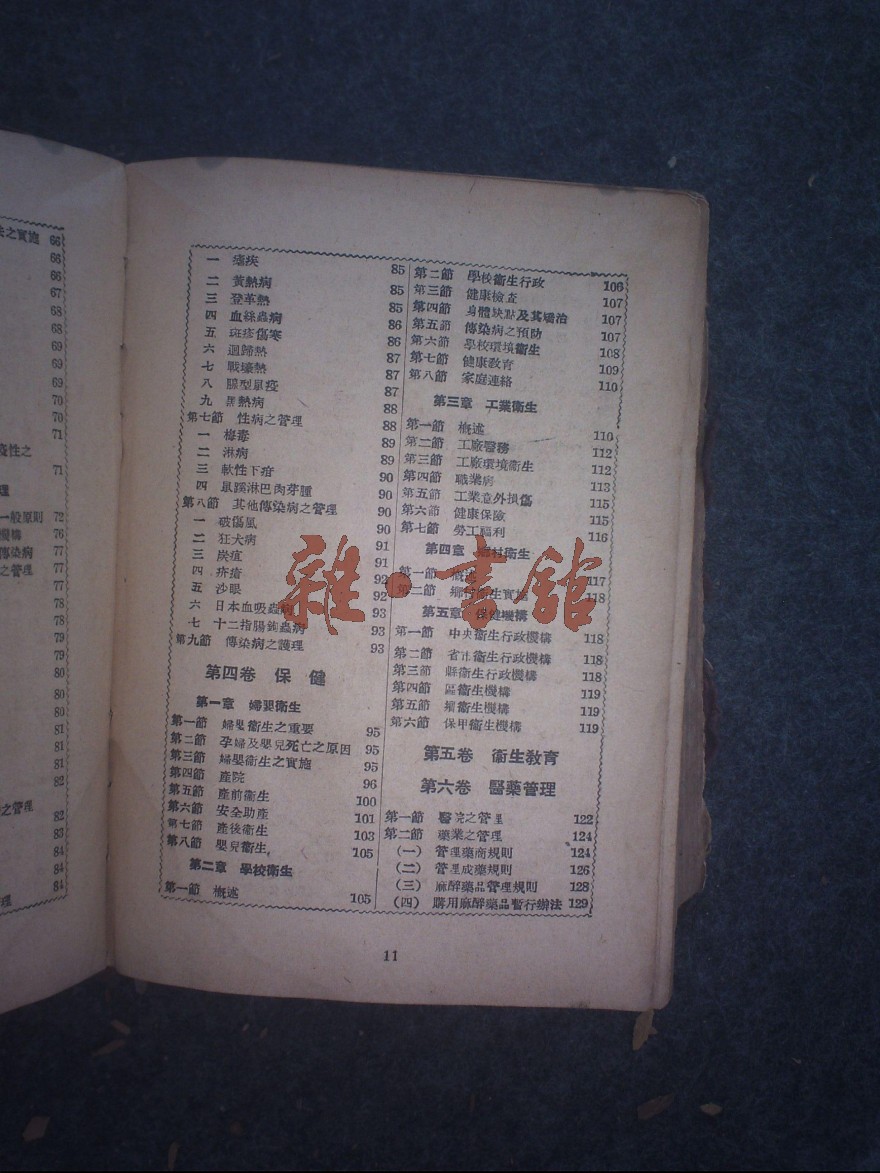 之實施 66
66
66
67
68
68
69
69
69
70
70
71
疫性之
71
理
一般原則 72
機構 76
傳染病 77
之管理 77
77
78
78
79
79
80
80
80
81
81
82
之管理
82
83
84
84
理 84
一 瘧疾 85
二 黃熱病 85
三 登革熱 85
四 血絲蟲病 86
五 斑疹傷寒 86
六 迴歸熱 87
七 戰壕熱 87
八 腺型鼠疫 87
九 黑熱病 88
第七節 性病之管理 88
一 梅毒 89
二 淋病 89
三 軟性下疳 90
四 鼠蹊淋巴肉芽腫 90
第八節 其他傳染病之管理 90
一 破傷風 90
二 狂犬病 91
三 炭疽 91
四 疥瘡 92
五 沙眼 92
六 日本血吸蟲病 93
七 十二指腸鉤蟲病 93
第九節 傳染病之護理 93
第四卷 保健
第一章 婦嬰衞生
第一節 婦嬰衞生之重要 95
第二節 孕婦及嬰兒死亡之原因 95
第三節 婦嬰衞生之實施 95
第四節 產院 96
第五節 產前衞生 100
第六節 安全助產 101
第七節 產後衞生 103
第八節 嬰兒衞生 105
第二章 學校衞生
第一節 概述 105
第二節 學校衞生行政 106
第三節 健康檢查 107
第四節 身體缺点及其矯治 107
第五節 傳染病之預防 107
第六節 學校環境衞生 108
第七節 健康教育 109
第八節 家庭連絡 110
第三章 工業衞生
第一節 概述 110
第二節 工廠醫務 112
第三節 工廠環境衞生 112
第四節 職業病 113
第五節 工業意外損傷 115
第六節 健康保險 115
第七節 勞工福利 116
第四章 村衞生
第一節 概述 117
第二節 鄉村衞生實施 118
第五章 保健機構
第一節 中央衞生行政機構 118
第二節 省市衞生行政機構 118
第三節 縣衞生行政機構 118
第四節 區衞生機構 119
第五節 鄉衞生機構 119
第六節 保甲衞生機構 119
第五卷 衞生教育
第六卷 醫藥管理
第一節 醫院之管理 122
第二節 藥業之管理 124
(一) 管理藥商規則 124
(二) 管理成藥規則 126
(三) 麻醉藥品管理規則 128
(四) 購用麻醉藥品暫行辦法 129
11
雜·書館